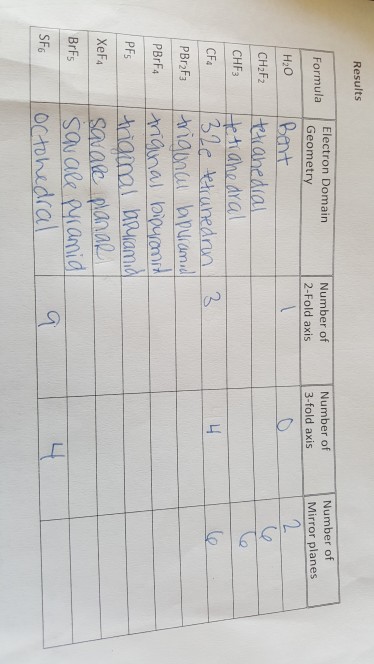 Results
Formula Electron Domain Geometry Number of 2-Fold axis Number of 3-fold axis Number of Mirror planes
H₂O Bent 1 0 2
CH₂F₂ tetrahedral 6
CHF₃ tetrahedral 6
CF₄ 32e tetrahedron 3 4 6
PBr₂F₃ trigonal bipyramid
PBrF₄ trigonal bipyramid
PF₅ trigional bipyramid
XeF₄ square planar
BrF₅ Square pyramid
SF₆ octohedral 9 4